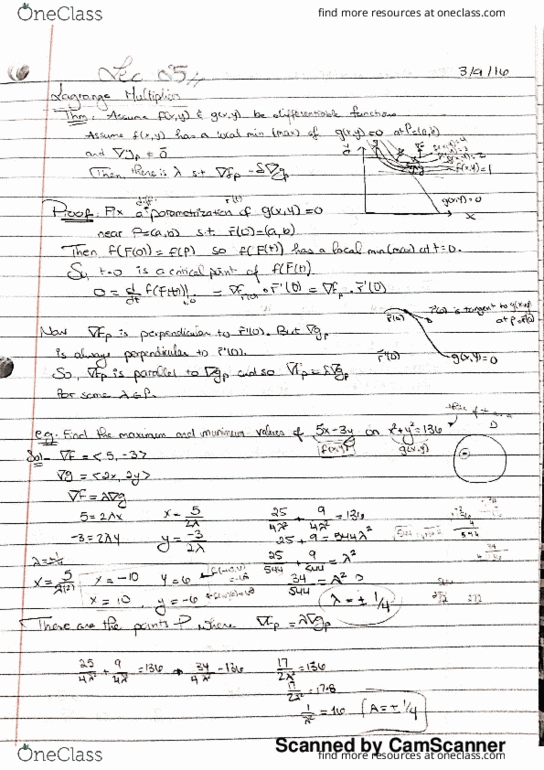 OneClass
find more resources at oneclass.com
Lec 25
3/9/16
Lagrange Multiplier
Thm: Assume f(x,y) & g(x,y) be differentiable functions
Assume f(x,y) has a local min (max) of g(x,y)=0 at P=(a,b)
and ∇g_p ≠ 0
Then there is λ s.t ∇f_p = λ∇g_p
f(x,y)=1
g(x,y)=0
x
Proof: Fix a parametrization of g(x,y)=0
near P=(a,b) s.t. r(0)=(a,b)
Then f(r(0)) = f(P) so f(r(t)) has a local min(max) at t=0.
So, t=0 is a critical point of f(r(t))
0 = d/dt f(r(t))|₀ = ∇f · r'(0) = ∇f_p · r'(0)
r'(0) is tangent to
at P
Now ∇f_p is perpendicular to r'(0). But ∇g_p
is always perpendicular to r'(0).
r'(0)
g(x,y)=0
So, ∇f_p is parallel to ∇g_p and so ∇f_p = λ∇g_p
for some λ∈R.
e.g. Find the maximum and minimum values of 5x-3y on x²+y²=136
f(x,y)
g(x,y)
Sol- ∇f = <5, -3>
∇g = <2x, 2y>
∇f = λ∇g
5 = 2λx x = 5/2λ 25/4λ² + 9/4λ² = 136
-3 = 2λy y = -3/2λ 25+9 = 544λ²
25/544 + 9/544 = λ²
x = -10 y = 6
34/544 = λ²
x = 10, y = -6
λ = ± 1/4
These are the points P where ∇f_p = λ∇g_p
25/4λ² + 9/4λ² = 136 → 34/4λ² = 136 17/2λ² = 136
1/λ² = 16 λ = ± 1/4
Scanned by CamScanner
OneClass
find more resources at oneclass.com